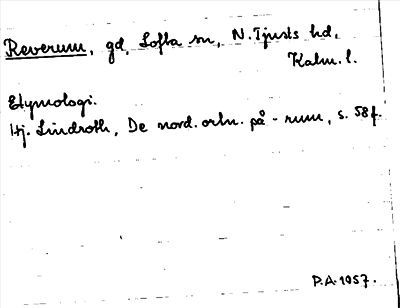 Reverum, gd, Lofta sn, N. Tjusts hd,
Kalm. l.
Etymologi.
Hj. Lindroth, De nord. ortn. på -rum, s. 58 f.
P.A. 1957.